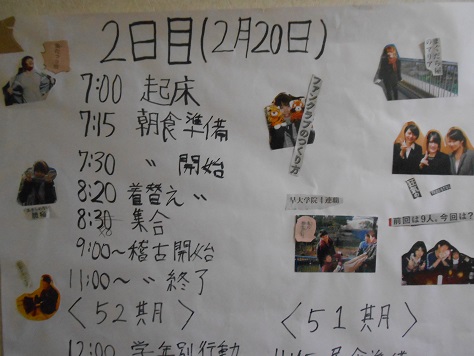 2日目(2月20日)
7:00 起床
7:15 朝食準備
7:30 〃 開始
8:20 着替え〃
8:30 集合
9:00~稽古開始
11:00~〃終了
〈52期〉
〈51期〉
12:00 学年別行動
ファンクラブのつくり方
早大学院4連覇
前回は9人、今回は?